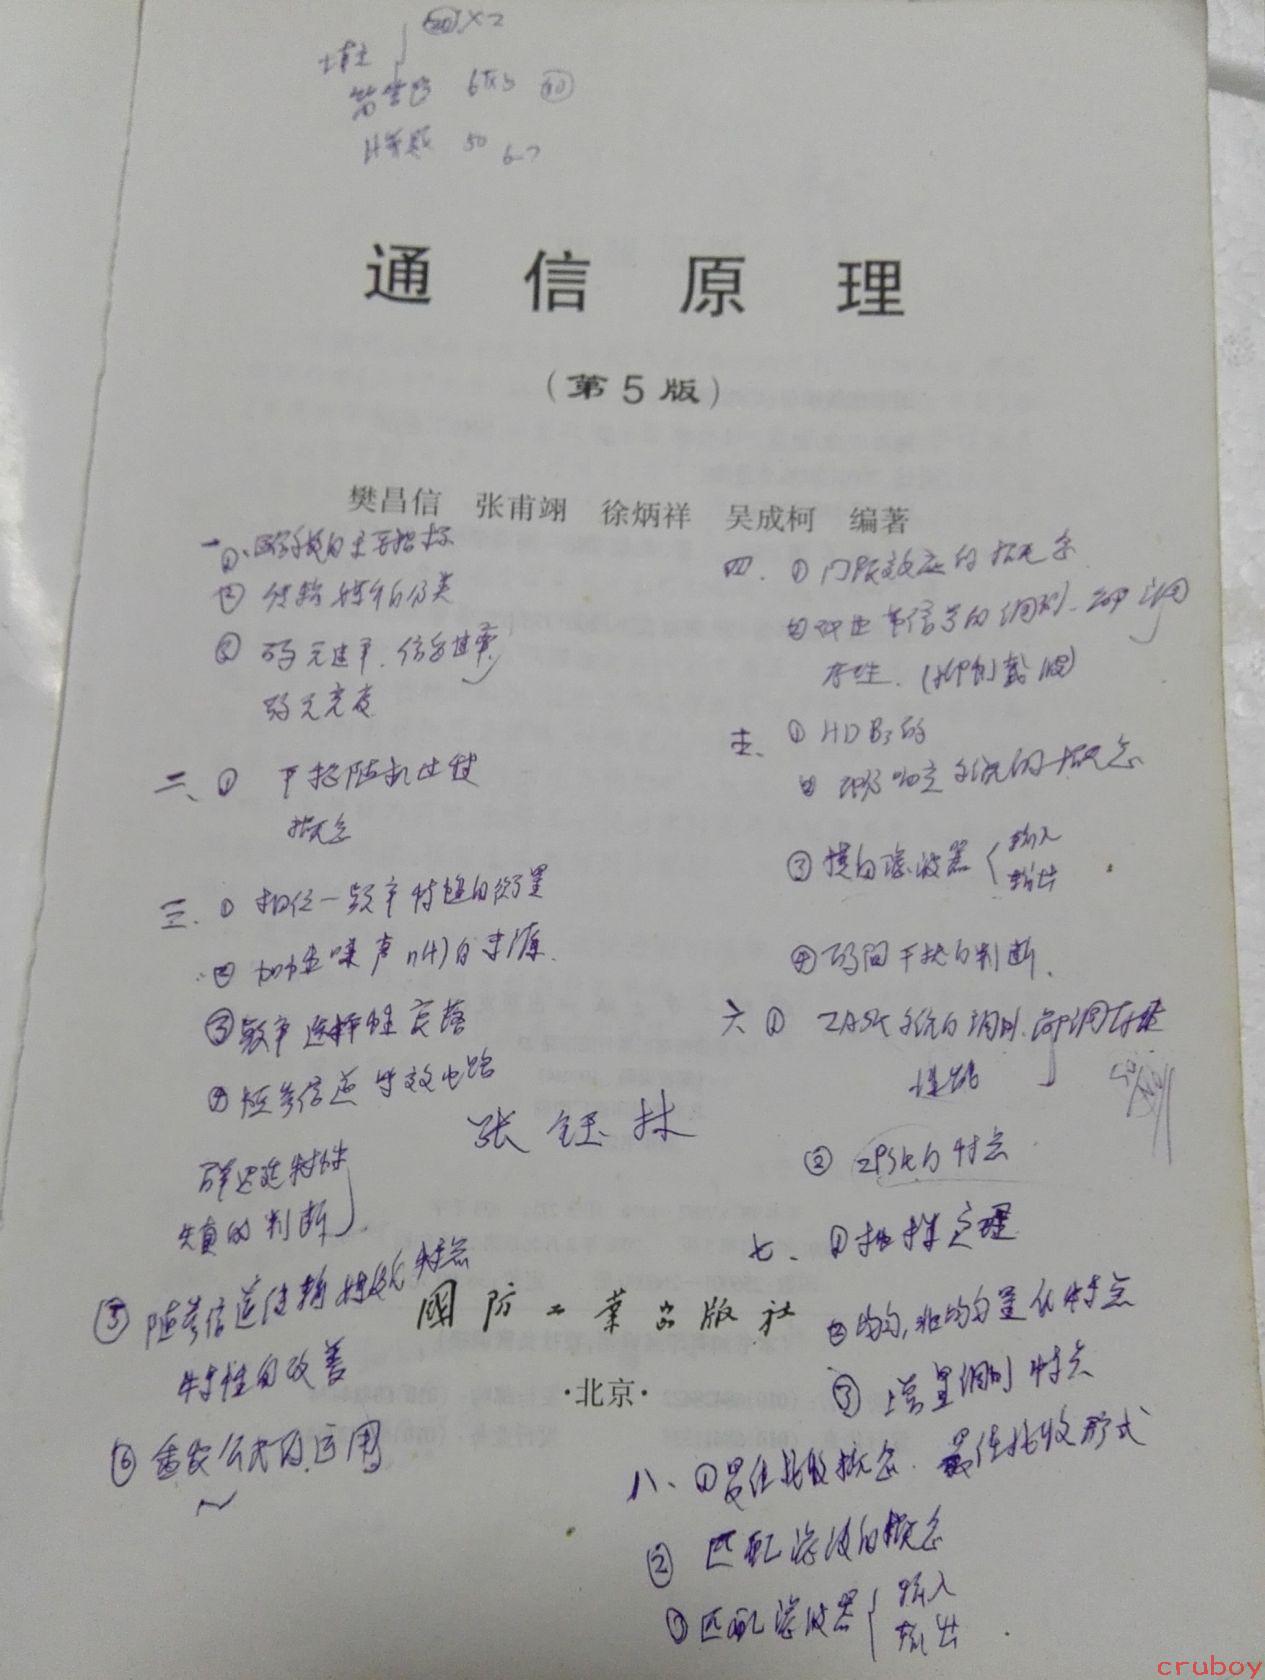 填空 20 X2
简答题 6 X5
计算题 50 6-7
通信原理
(第5版)
樊昌信 张甫翊 徐炳祥 吴成柯 编著
一、①
② 传输 的分类
③ 码元速率、信息速率
码元宽度
二、① 平稳随机过程
概念
三、① 相位—频率特性的衡量
② 加性噪声n(t)的来源.
③ 频率选择性衰落
④ 恒参信道等效电路
群迟延特性
失真的判断
⑤ 随参信道传输 特点
特性的改善
⑥ 香农公式的运用
张钰林
四、① 门限效应的概念
② 信号的调制、解调
(抑制载波)
五、① HDB3码
② 部分响应系统的概念
③ 横向滤波器 { 输入
输出
④ 码间干扰的判断.
六 ① 2ASK系统的调制、解调
性能
② 2PSK的特点
七、① 抽样定理
② 均匀,非均匀量化特点
③ 增量调制特点
八、① 最佳接收概念. 最佳接收形式
② 匹配滤波的概念
③ 匹配滤波器 { 输入
输出
國防工業出版社
·北京·
cruboy